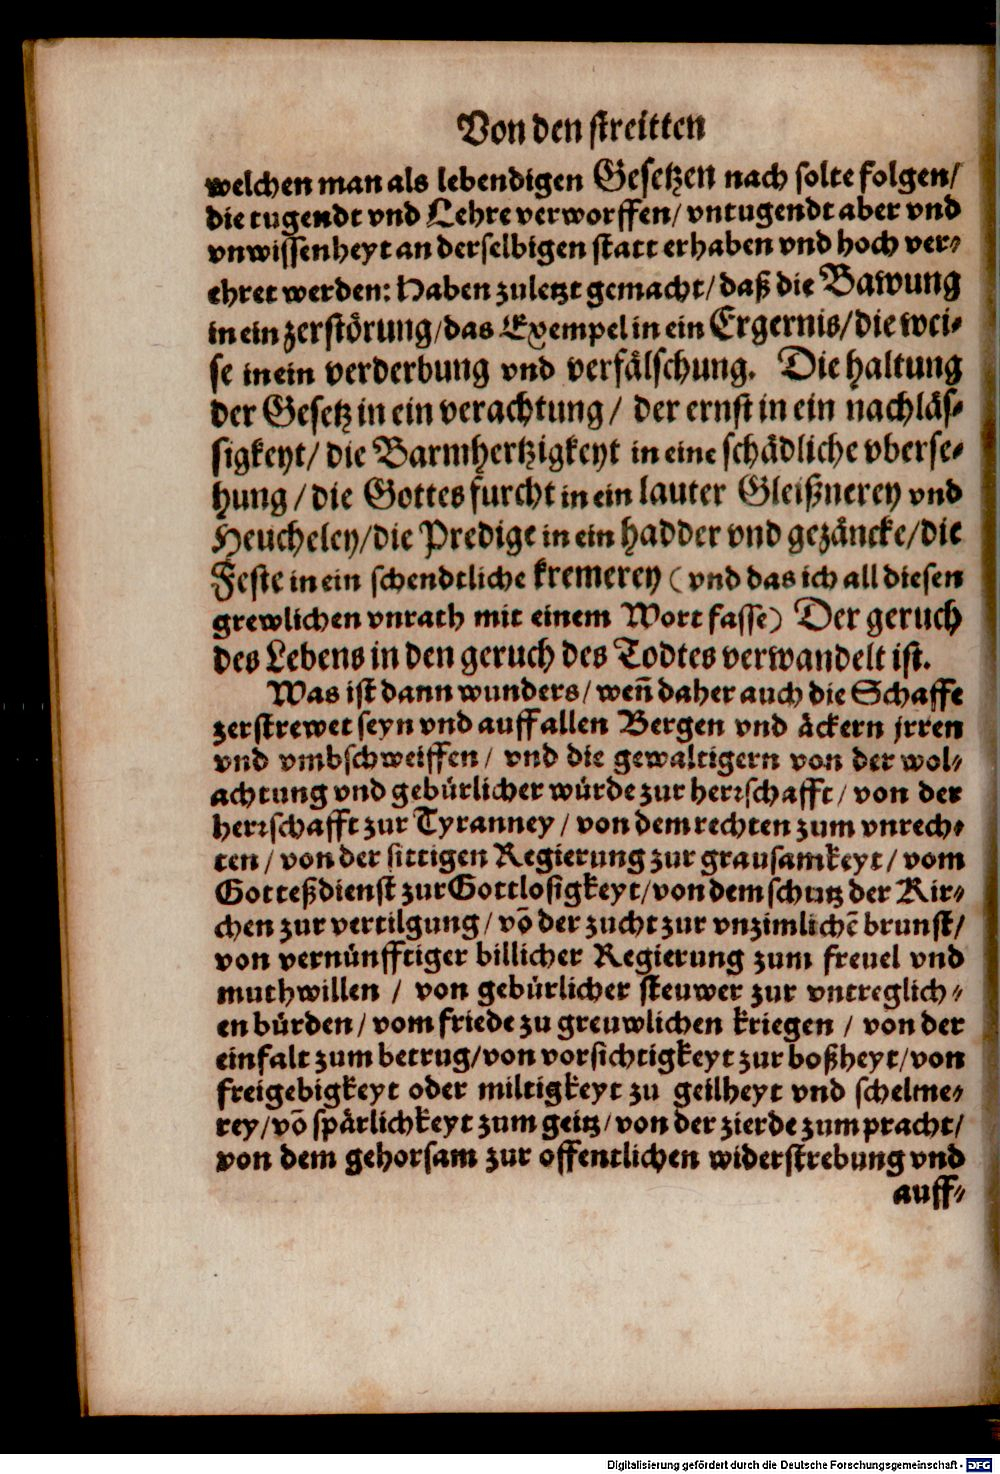 Von den streitten
welchen man als lebendigen Gesetzen nach solte folgen/
die tugendt vnd Lehre verworffen/ vntugendt aber vnd
vnwissenheyt an derselbigen statt erhaben vnd hoch ver-
ehret werden: Haben zuletzt gemacht/ daß die Bawung
in ein zerstörung/ das Exempel in ein Ergernis/ die wei-
se in ein verderbung vnd verfälschung. Die haltung
der Gesetz in ein verachtung/ der ernst in ein nachläs-
sigkeyt/ die Barmhertzigkeyt in eine schädliche vberse-
hung/ die Gottesfurcht in ein lauter Gleißnerey vnd
Heucheley/ die Predige in ein hadder vnd gezäncke/ die
Feste in ein schendtliche kremerey (vnd das ich all diesen
grewlichen vnrath mit einem Wort fasse) Der geruch
des Lebens in den geruch des Todtes verwandelt ist.
Was ist dann wunders/ weñ daher auch die Schaffe
zerstrewet seyn vnd auff allen Bergen vnd äckern jrren
vnd vmbschweiffen/ vnd die gewaltigern von der wol-
achtung vnd gebürlicher würde zur herrschafft/ von der
herrschafft zur Tyranney/ von dem rechten zum vnrech-
ten/ von der sittigen Regierung zur grausamkeyt/ vom
Gotteßdienst zur Gottlosigkeyt/ von dem schutz der Kir-
chen zur vertilgung/ võ der zucht zur vnzimlichẽ brunst/
von vernünfftiger billicher Regierung zum freuel vnd
muthwillen/ von gebürlicher steuwer zur vntreglich-
en bürden/ vom friede zu greuwlichen kriegen/ von der
einfalt zum betrug/ von vorsichtigkeyt zur boßheyt/ von
freigebigkeyt oder miltigkeyt zu geilheyt vnd schelme-
rey/ võ spärlichkeyt zum geitz/ von der zierde zum pracht/
von dem gehorsam zur offentlichen widerstrebung vnd
auff-
Digitalisierung gefördert durch die Deutsche Forschungsgemeinschaft - DFG